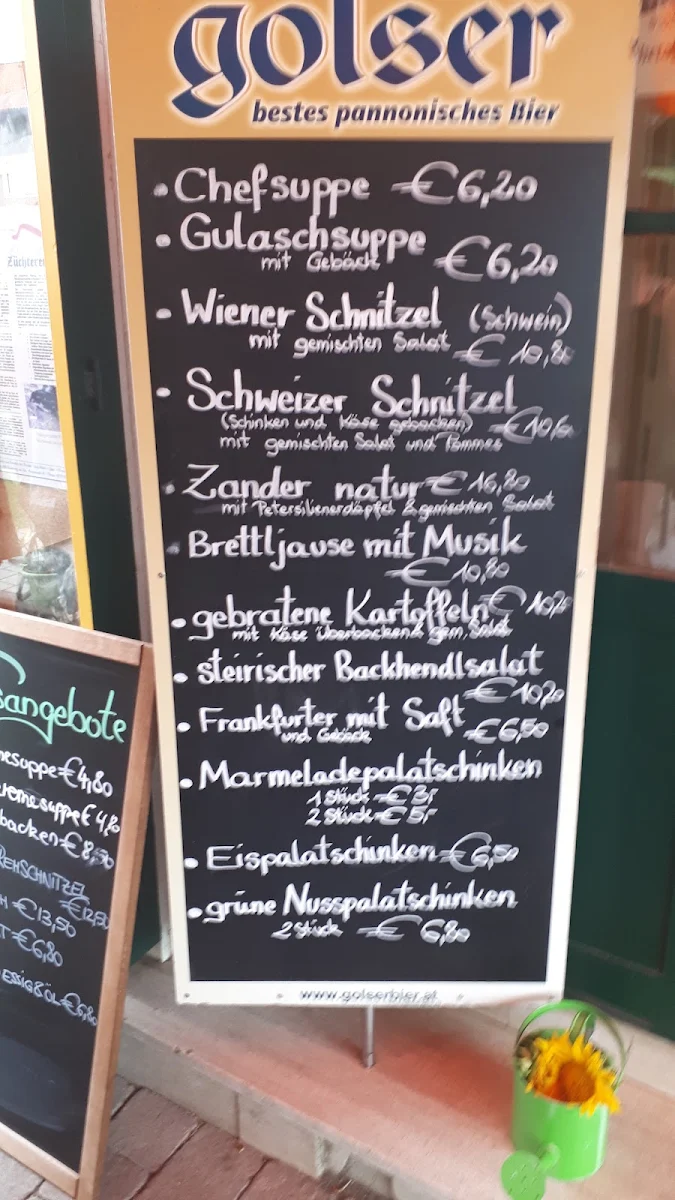 golser
bestes pannonisches Bier
• Chefsuppe €6,20
• Gulaschsuppe
mit Gebäck €6,20
• Wiener Schnitzel (Schwein)
mit gemischten Salat € 10,80
• Schweizer Schnitzel
(Schinken und Käse gebacken) €10,60
mit gemischten Salat und Pommes
• Zander natur €16,80
mit Petersilienerdäpfel & gemischten Salat
• Brettljause mit Musik
€10,80
• gebratene Kartoffeln € 10,20
mit Käse Überbacken & gem. Salat
• steirischer Backhendlsalat
€10,20
• Frankfurter mit Saft €6,50
und Gebäck
• Marmeladepalatschinken
1 Stück €3,-
2 Stück €5,-
• Eispalatschinken €6,50
• grüne Nusspalatschinken
2 Stück € 6,80
www.golserbier.at
sangebote
suppe €4,80
cremesuppe € 4,80
backen €8,50
REHSCHNITZEL
€12,50
€13,50
€6,80
ESSIG & ÖL €6,80
Züchter